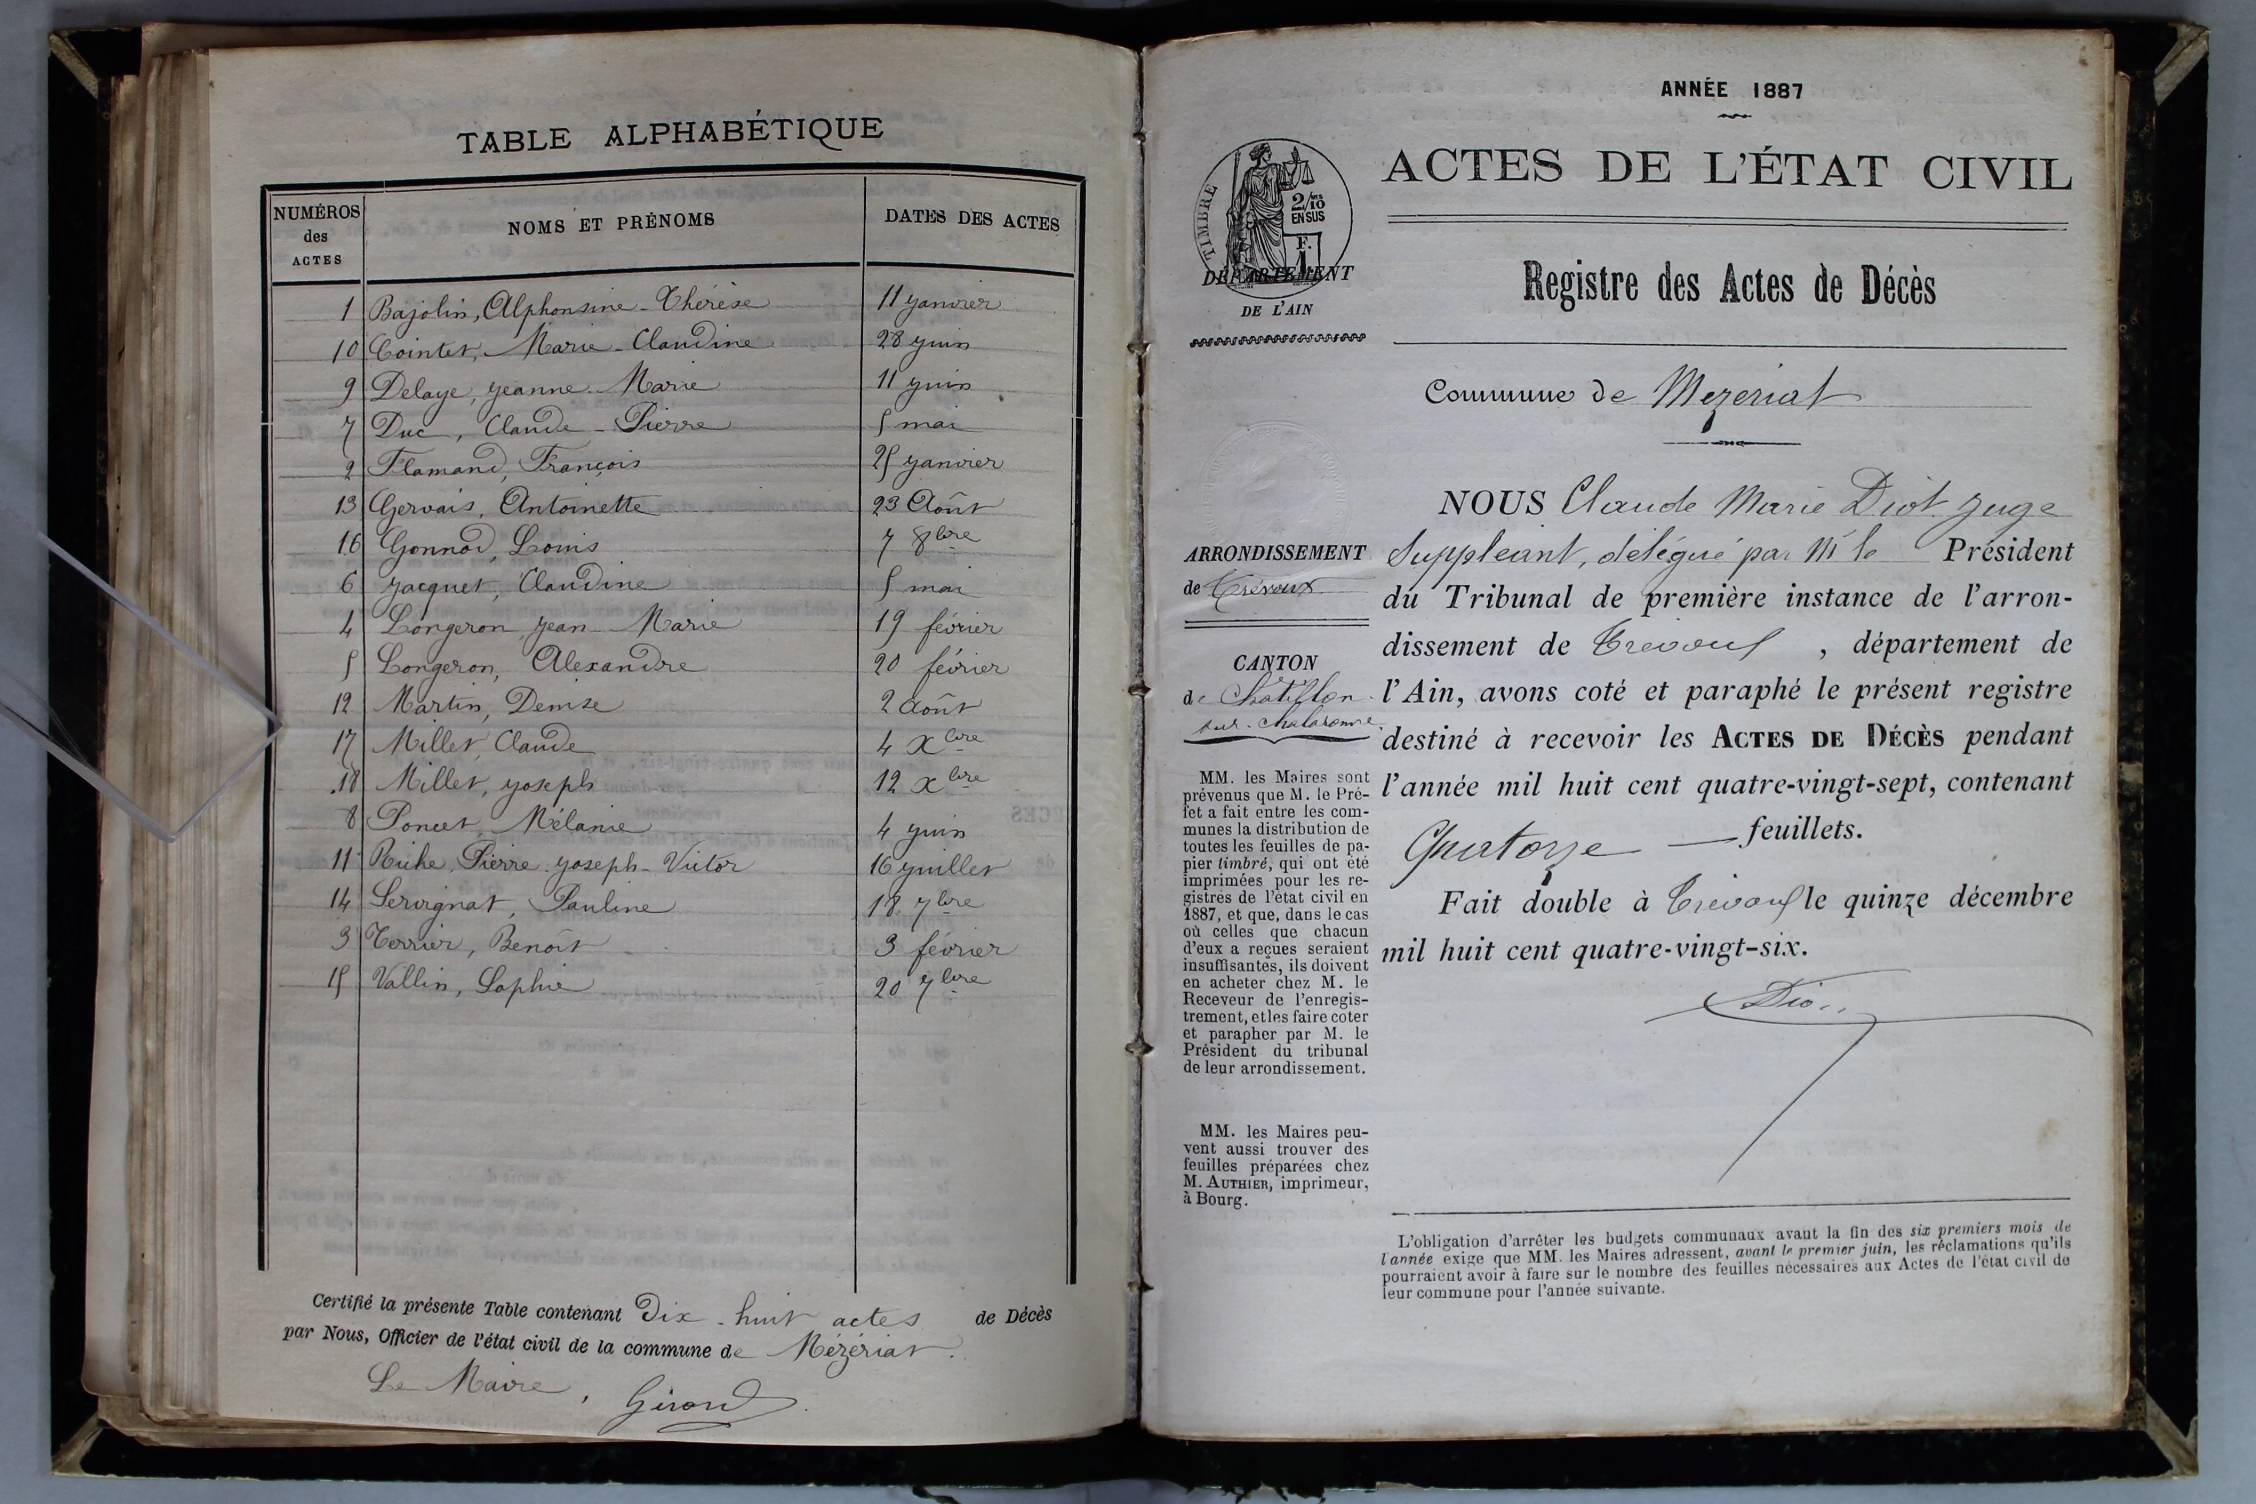 TABLE ALPHABÉTIQUE
NUMÉROS des ACTES NOMS ET PRÉNOMS DATES DES ACTES
1 Bajolin, Alphonsine-Thérèse 11 janvier
10 Cointet, Marie-Claudine 28 juin
9 Delaye, Jeanne Marie 11 juin
7 Duc, Claude-Pierre 5 mai
2 Flamand, François 25 janvier
13 Gervais, Antoinette 23 Août
16 Gonnod, Louis 7 8bre
6 Jacquet, Claudine 5 mai
4 Longeron Jean Marie 19 février
5 Longeron, Alexandre 20 février
12 Martin, Denise 2 Août
17 Millet, Claude 4 Xbre
18 Millet, Joseph 12 Xbre
8 Poncet, Mélanie 4 juin
11 Pierre-Joseph-Victor 16 juillet
14 Servignat, Pauline 18 7bre
3 Terrier, Benoît 3 février
15 Vallin, Sophie 20 7bre
Certifié la présente Table contenant Dix-huit actes de Décès
par Nous, Officier de l'état civil de la commune de Mézériat.
Le Maire, Girard
ANNÉE 1887
ACTES DE L'ÉTAT CIVIL
TIMBRE
2/10 EN SUS
F. 1
DÉPARTEMENT
DE L'AIN
Registre des Actes de Décès
Commune de Mezeriat
NOUS Claude Marie Diot Juge
Suppléant, délégué par M le Président
du Tribunal de première instance de l'arron-
dissement de Trévoux, département de
l'Ain, avons coté et paraphé le présent registre
destiné à recevoir les ACTES DE DÉCÈS pendant
l'année mil huit cent quatre-vingt-sept, contenant
Quatorze feuillets.
Fait double à Trévoux le quinze décembre
mil huit cent quatre-vingt-six.
Diot
ARRONDISSEMENT
de Trévoux
CANTON
de Chatillon
sur-Chalaronne
MM. les Maires sont
prévenus que M. le Pré-
fet a fait entre les com-
munes la distribution de
toutes les feuilles de pa-
pier timbré, qui ont été
imprimées pour les re-
gistres de l'état civil en
1887, et que, dans le cas
où celles que chacun
d'eux a reçues seraient
insuffisantes, ils doivent
en acheter chez M. le
Receveur de l'enregis-
trement, et les faire coter
et parapher par M. le
Président du tribunal
de leur arrondissement.
MM. les Maires peu-
vent aussi trouver des
feuilles préparées chez
M. AUTHIER, imprimeur,
à Bourg.
L'obligation d'arrêter les budgets communaux avant la fin des six premiers mois de
l'année exige que MM. les Maires adressent, avant le premier juin, les réclamations qu'ils
pourraient avoir à faire sur le nombre des feuilles nécessaires aux Actes de l'état civil de
leur commune pour l'année suivante.